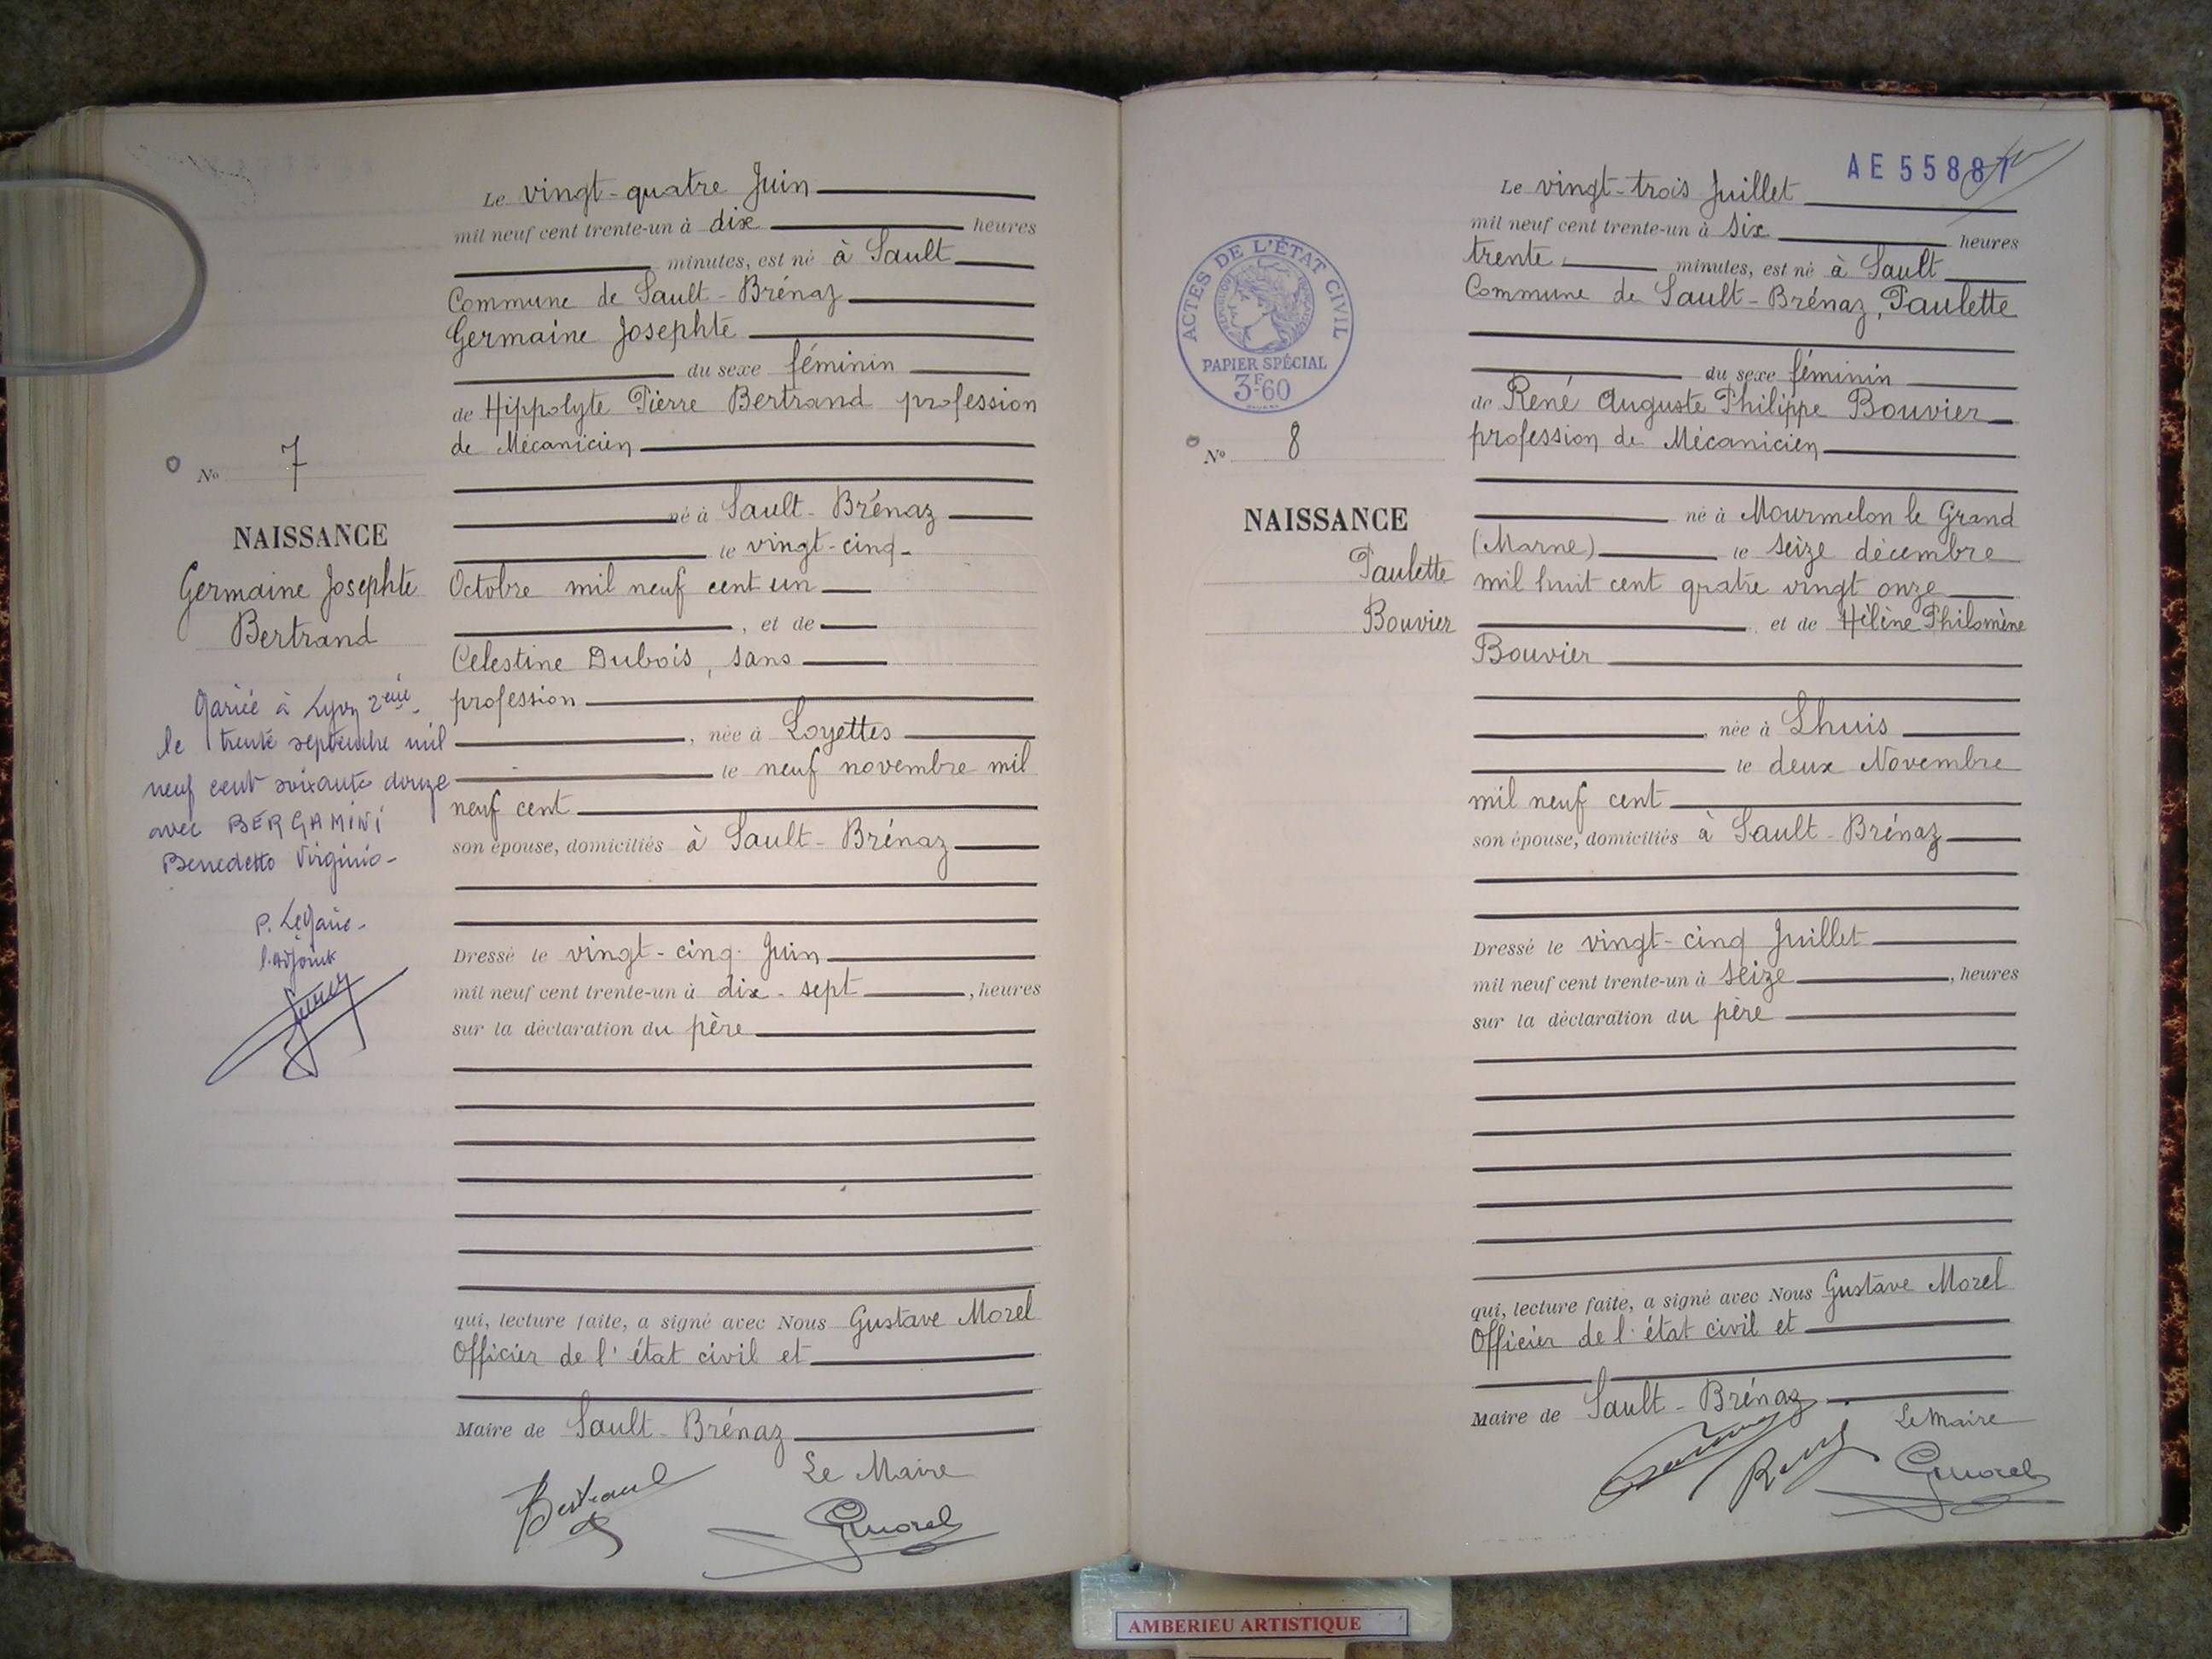 Le vingt-quatre Juin
mil neuf cent trente-un à dix heures
minutes, est né à Sault
Commune de Sault-Brénaz
Germaine Josephte
du sexe féminin
de Hippolyte Pierre Bertrand profession
de Mécanicien
né à Sault-Brénaz
le vingt-cinq-
Octobre mil neuf cent un
, et de
Celestine Dubois, sans
profession
, née à Loyettes
le neuf novembre mil
neuf cent
son épouse, domiciliés à Sault-Brénaz
Dressé le vingt-cinq Juin
mil neuf cent trente-un à dix-sept , heures
sur la déclaration du père
qui, lecture faite, a signé avec Nous Gustave Morel
Officier de l'état civil et
Maire de Sault-Brénaz
Bertrand
Le Maire
GMorel
No 7
NAISSANCE
Germaine Josephte
Bertrand
Mariée à Lyon 2eme
le trente septembre mil
neuf cent soixante douze
avec BERGAMINI
Benedetto Virginio-
P. Le Maire-
l'adjoint
AE 55887
ACTES DE L'ÉTAT CIVIL
PAPIER SPÉCIAL
3F.60
No 8
NAISSANCE
Paulette
Bouvier
Le vingt-trois Juillet
mil neuf cent trente-un à six heures
trente minutes, est né à Sault
Commune de Sault-Brénaz, Paulette
du sexe féminin
de René Auguste Philippe Bouvier
profession de Mécanicien
né à Mourmelon le Grand
(Marne) le seize décembre
mil huit cent quatre vingt onze
et de Hélène Philomène
Bouvier
, née à Lhuis
le deux Novembre
mil neuf cent
son épouse, domiciliés à Sault-Brénaz
Dressé le vingt-cinq Juillet
mil neuf cent trente-un à seize , heures
sur la déclaration du père
qui, lecture faite, a signé avec Nous Gustave Morel
Officier de l'état civil et
Maire de Sault-Brénaz
Le Maire
GMorel
AMBERIEU ARTISTIQUE